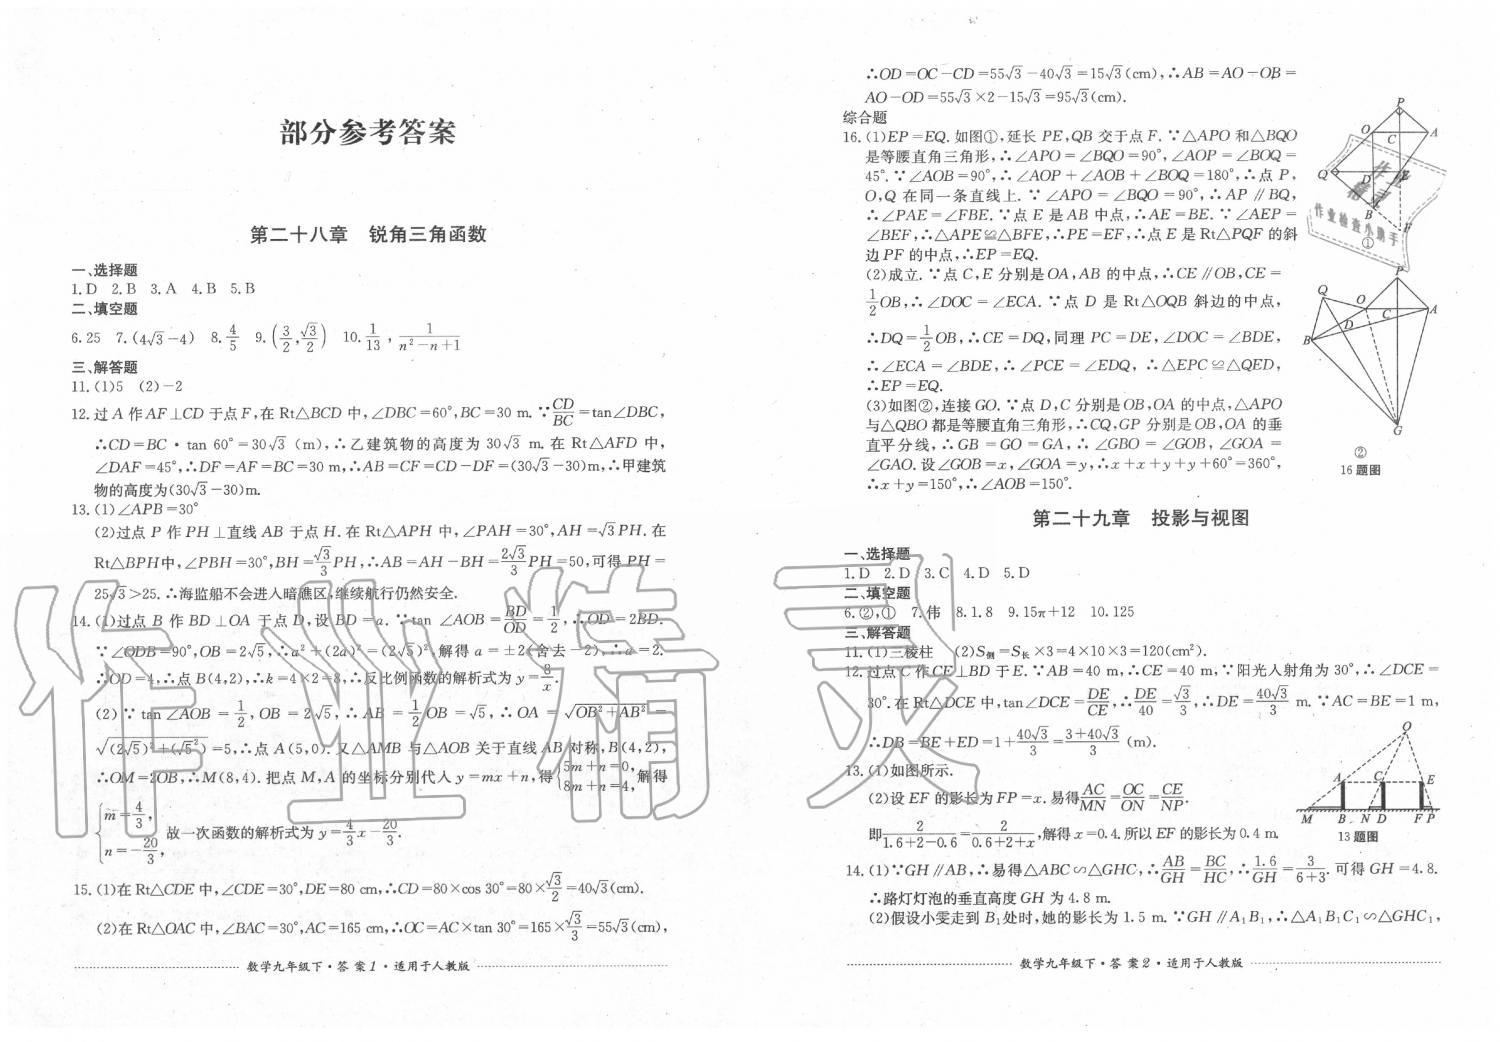 部分参考答案
第二十八章　锐角三角函数
一、选择题
1.D　2.B　3.A　4.B　5.B
二、填空题
6.25　7.(4√3-4)　8.4/5　9.(3/2,√3/2)　10.1/13，1/(n²-n+1)
三、解答题
11.(1)5　(2)-2
12.过A作AF⊥CD于点F,在Rt△BCD中,∠DBC=60°,BC=30 m.∵CD/BC=tan∠DBC,
∴CD=BC·tan 60°=30√3 (m),∴乙建筑物的高度为30√3 m.在Rt△AFD中,
∠DAF=45°,∴DF=AF=BC=30 m,∴AB=CF=CD-DF=(30√3-30)m,∴甲建筑
物的高度为(30√3-30)m.
13.(1)∠APB=30°
(2)过点P作PH⊥直线AB于点H.在Rt△APH中,∠PAH=30°,AH=√3PH.在
Rt△BPH中,∠PBH=30°,BH=√3/3PH,∴AB=AH-BH=2√3/3PH=50,可得PH=
25√3>25.∴海监船不会进入暗礁区,继续航行仍然安全.
14.(1)过点B作BD⊥OA于点D,设BD=a.∵tan∠AOB=BD/OD=1/2,∴OD=2BD.
∵∠ODB=90°,OB=2√5,∴a²+(2a)²=(2√5)²,解得a=±2(舍去-2),∴a=2.
∴OD=4,∴点B(4,2),∴k=4×2=8,∴反比例函数的解析式为y=8/x.
(2)∵tan∠AOB=1/2,OB=2√5,∴AB=1/2OB=√5,∴OA=√(OB²+AB²)=
√((2√5)²+(√5²))=5,∴点A(5,0).又△AMB与△AOB关于直线AB对称,B(4,2),
∴OM=2OB,∴M(8,4).把点M,A的坐标分别代入y=mx+n,得{5m+n=0,8m+n=4,解得
{m=4/3,n=-20/3,故一次函数的解析式为y=4/3x-20/3.
15.(1)在Rt△CDE中,∠CDE=30°,DE=80 cm,∴CD=80×cos 30°=80×√3/2=40√3(cm).
(2)在Rt△OAC中,∠BAC=30°,AC=165 cm,∴OC=AC×tan 30°=165×√3/3=55√3(cm),
数学九年级下·答案1·适用于人教版
∴OD=OC-CD=55√3-40√3=15√3(cm),∴AB=AO-OB=
AO-OD=55√3×2-15√3=95√3(cm).
综合题
16.(1)EP=EQ.如图①,延长PE,QB交于点F.∵△APO和△BQO
是等腰直角三角形,∴∠APO=∠BQO=90°,∠AOP=∠BOQ=
45°.∵∠AOB=90°,∴∠AOP+∠AOB+∠BOQ=180°,∴点P,
O,Q在同一条直线上.∵∠APO=∠BQO=90°,∴AP∥BQ,
∴∠PAE=∠FBE.∵点E是AB中点,∴AE=BE.∵∠AEP=
∠BEF,∴△APE≌△BFE,∴PE=EF,∴点E是Rt△PQF的斜
边PF的中点,∴EP=EQ.
(2)成立.∵点C,E分别是OA,AB的中点,∴CE∥OB,CE=
1/2OB,∴∠DOC=∠ECA.∵点D是Rt△OQB斜边的中点,
∴DQ=1/2OB,∴CE=DQ,同理PC=DE,∠DOC=∠BDE,
∴∠ECA=∠BDE,∴∠PCE=∠EDQ,∴△EPC≌△QED,
∴EP=EQ.
(3)如图②,连接GO.∵点D,C分别是OB,OA的中点,△APO
与△QBO都是等腰直角三角形,∴CQ,GP分别是OB,OA的垂
直平分线,∴GB=GO=GA,∴∠GBO=∠GOB,∠GOA=
∠GAO.设∠GOB=x,∠GOA=y,∴x+x+y+y+60°=360°,
∴x+y=150°,∴∠AOB=150°.
P
O
C
A
Q
D
E
B
F
①
P
Q
O
C
A
D
B
G
②
16题图
第二十九章　投影与视图
一、选择题
1.D　2.D　3.C　4.D　5.D
二、填空题
6.②,①　7.伟　8.1.8　9.15π+12　10.125
三、解答题
11.(1)三棱柱　(2)S侧=S长×3=4×10×3=120(cm²).
12.过点C作CE⊥BD于E.∵AB=40 m,∴CE=40 m,∵阳光入射角为30°,∴∠DCE=
30°.在Rt△DCE中,tan∠DCE=DE/CE,∴DE/40=√3/3,∴DE=40√3/3 m.∵AC=BE=1 m,
∴DB=BE+ED=1+40√3/3=(3+40√3)/3 (m).
13.(1)如图所示.
(2)设EF的影长为FP=x.易得AC/MN=OC/ON=CE/NP.
即2/(1.6+2-0.6)=2/(0.6+2+x),解得x=0.4.所以EF的影长为0.4 m.
O
A C E
M B N D F P
13题图
14.(1)∵GH∥AB,∴易得△ABC∽△GHC,∴AB/GH=BC/HC,∴1.6/GH=3/(6+3).可得GH=4.8.
∴路灯灯泡的垂直高度GH为4.8 m.
(2)假设小雯走到B₁处时,她的影长为1.5 m.∵GH∥A₁B₁,∴△A₁B₁C₁∽△GHC₁,
数学九年级下·答案2·适用于人教版
作业精灵
作业精灵
作业检查小助手